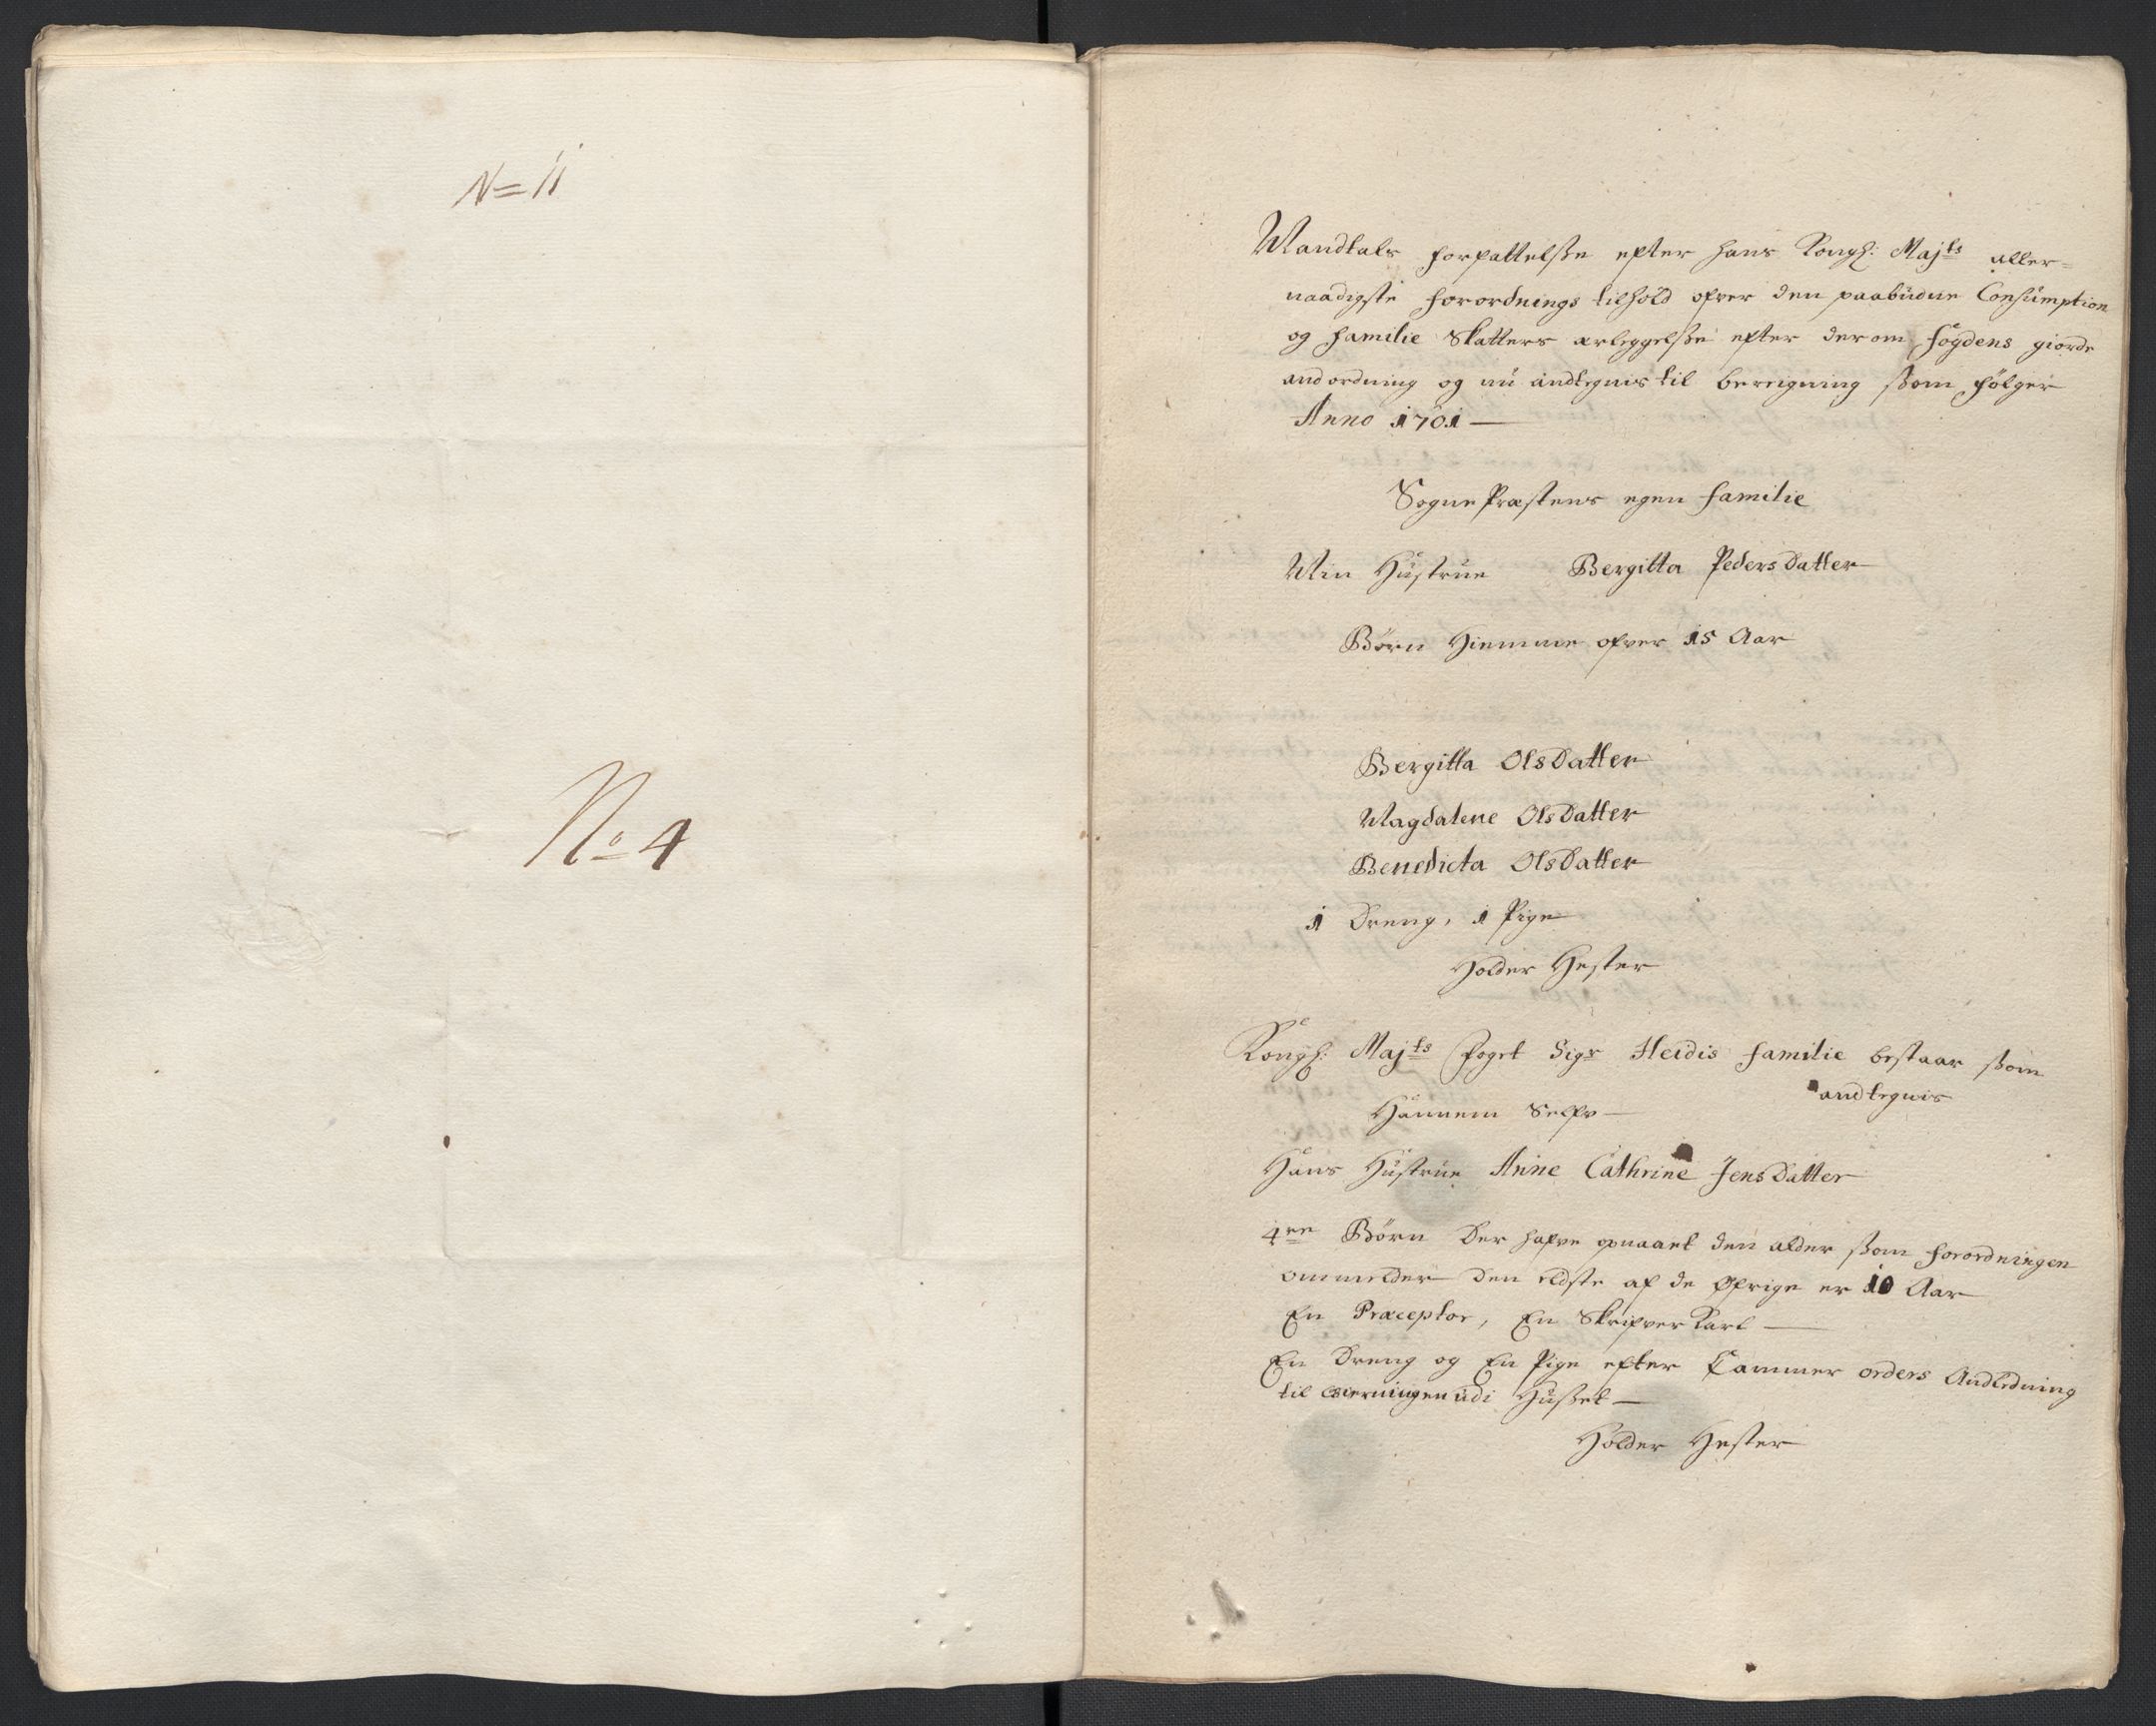 N= 11
No 4
Mandtals forfattelsse efter hans Kongl: Majts aller=
naadigste forordnings tilhold ofver den paabudne Consumption
og familie Skatters erleggelsse efter derom fogdens giorde
andordning og nu andtegnis til beregning ssom følger
Anno 1701 —
Sogne Præstens egen familie
Min Hustrue Bergitta Pedersdatter
Børn Hiemme ofver 15 Aar
Bergitta Olsdatter
Magdalene Olsdatter
Benedicta Olsdatter
1 Dreng, 1 Pige
Holder Hester
Kongl: Majts foget Sigr Heidis familie bestaar ssom
andtegnis
Hannem Self
Hans Hustrue Anne Cathrine Jensdatter
4re Børn Der hafve opnaaet den alder ssom forordningen
ommelder den eldste af de øfrige er 10 Aar
En Præceptor, En Skrifver Karl —
En Dreng og En Pige efter Cammer orders Andledning
til udi Husset —
Holder Hester